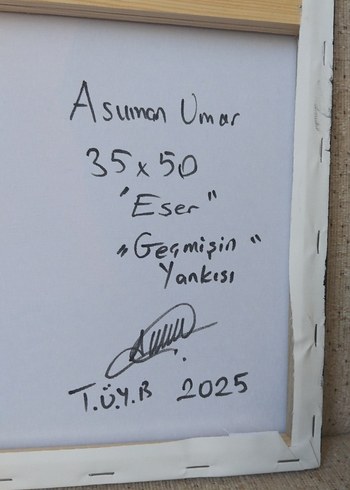 Asuman Umar
35x50
"Eser"
"Geçmişin"
Yankısı
T.Ü.Y.B 2025